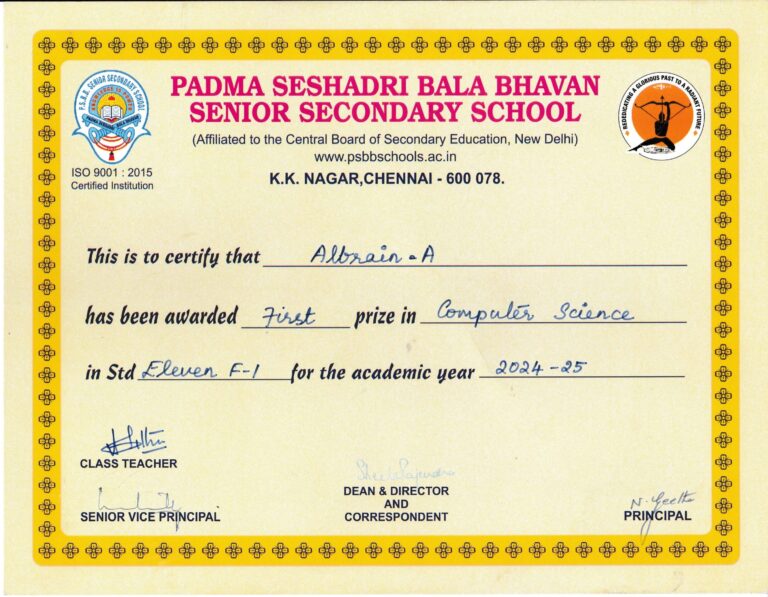 PADMA SESHADRI BALA BHAVAN
SENIOR SECONDARY SCHOOL
(Affiliated to the Central Board of Secondary Education, New Delhi)
www.psbbschools.ac.in
K.K. NAGAR,CHENNAI - 600 078.
P.S.B.B. SENIOR SECONDARY SCHOOL
KNOWLEDGE IS POWER
PADMA SESHADRI BALA BHAVAN
ISO 9001 : 2015
Certified Institution
REDEDICATING A GLORIOUS PAST TO A RADIANT FUTURE
This is to certify that Albrain.A
has been awarded First prize in Computer Science
in Std Eleven F-1 for the academic year 2024-25
CLASS TEACHER
SENIOR VICE PRINCIPAL
DEAN & DIRECTOR
AND
CORRESPONDENT
N. Geetha
PRINCIPAL